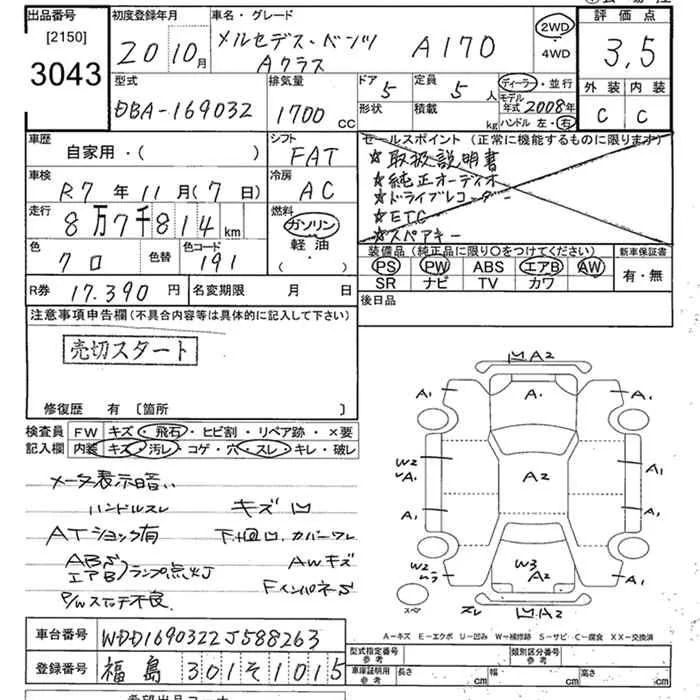 出品番号 初度登録年月 車名・グレード 評価点
[2150]
3043
20 10月 メルセデス・ベンツ Aクラス A170 2WD ・ 4WD 3,5
型式 排気量 ドア 定員 ディーラー・並行 外装 内装
DBA-169032 1700 cc 5 5人 モデル年式 2008年 C C
形状 積載 kg ハンドル 左・右
車歴 シフト セールスポイント (正常に機能するものに限ります)
自家用・( ) FAT ☆取扱説明書
車検 冷房 ☆純正オーディオ
R7年11月(7日) AC ☆ドライブレコーダー
走行 燃料 ☆ETC
8万7千814km ガソリン ☆スペアキー
軽油
・( )
色 色替 色コード 装備品 (純正品に限り〇をつけてください) 新車保証書
クロ 191 PS PW ABS エアB AW 有・無
SR ナビ TV カワ
R券 17.390円 名変期限 月 日 後日品
注意事項申告欄 (不具合内容等は具体的に記入して下さい)
売切スタート
修復歴 有 [箇所 ]
検査員 FW キズ・飛石・ヒビ割・リペア跡・×要
記入欄 内装 キズ・汚レ・コゲ・穴・スレ・キレ・破レ
メータ表示暗い
ハンドルスレ キズ凹
ATショック有 カバーワレ
ABS エアB ランプ点灯 AWキズ
P/Wスイッチ不良 FインパネS
凹A2
A1 A. A1
W2 A2 A1
A1 A1
W2 W3 A2 A1
スペア スレ 凹A2
A-キズ E-エクボ U-凹み W-補修跡 S-サビ C-腐食 XX-交換済
車台番号 WDD1690322J588263
登録番号 福島 301そ1015
型式指定番号 参考 類別区分番号 参考
車庫証明用 参考 長さ cm 幅 cm 高さ cm